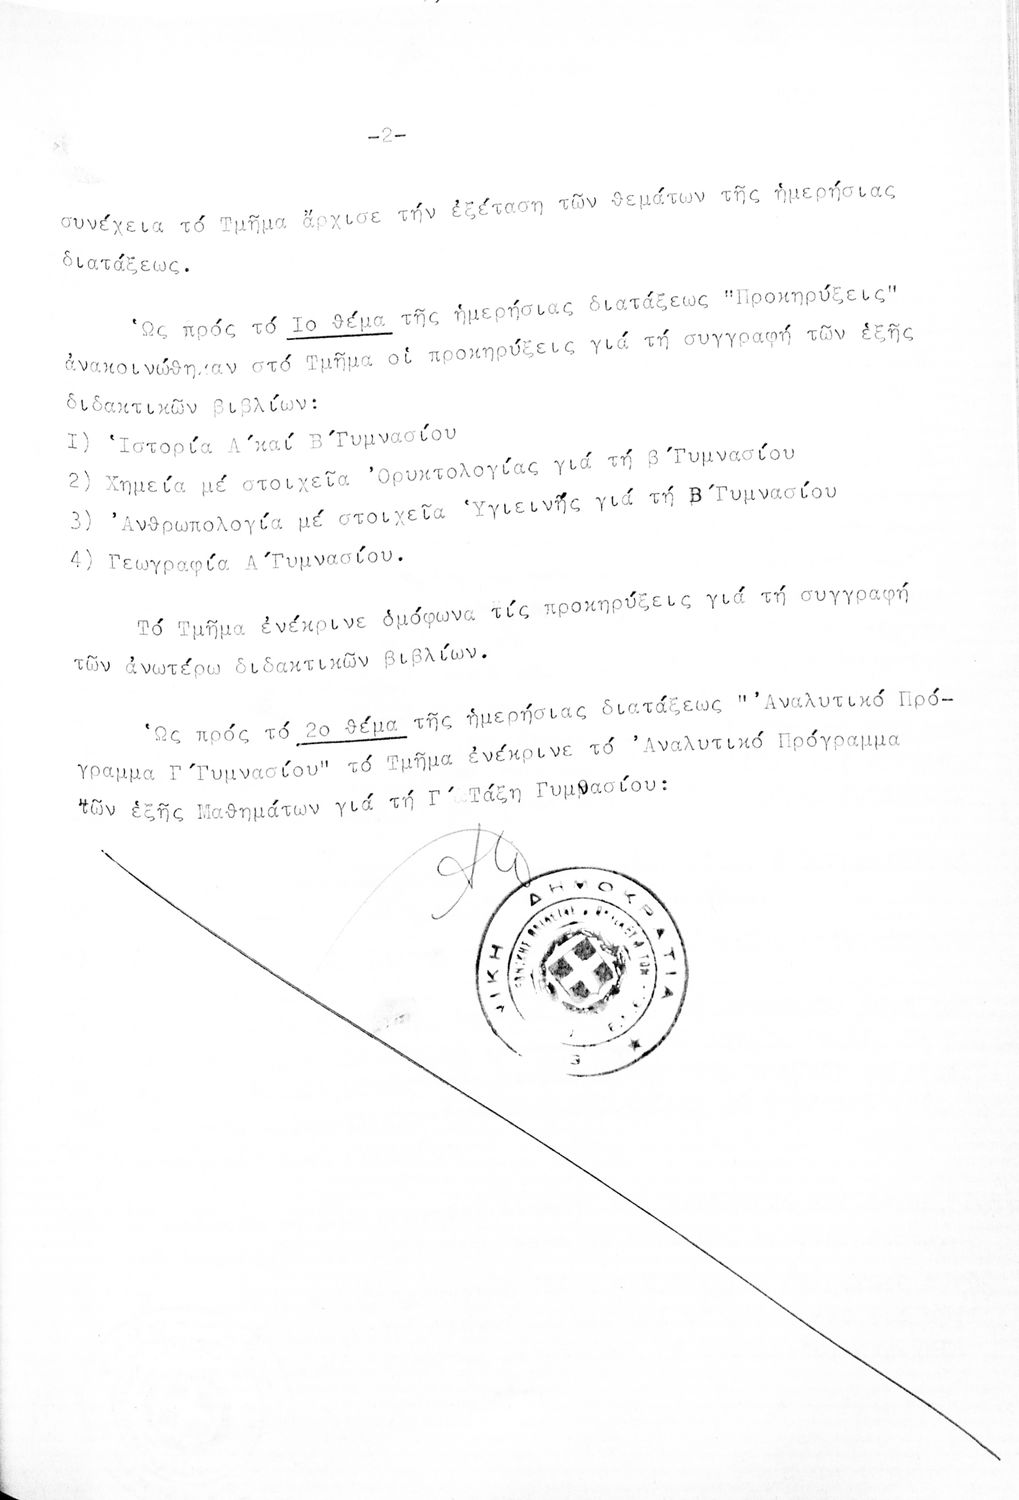 -2-
συνέχεια τό Τμῆμα ἄρχισε τήν ἐξέταση τῶν θεμάτων τῆς ἡμερήσιας
διατάξεως.
Ὡς πρός τό Ιο θέμα τῆς ἡμερήσιας διατάξεως "Προκηρύξεις"
ἀνακοινώθη αν στό Τμῆμα οἱ προκηρύξεις γιά τή συγγραφή τῶν ἑξῆς
διδακτικῶν βιβλίων:
Ι) Ἱστορία Α΄καί Β΄Γυμνασίου
2) Χημεία μέ στοιχεῖα Ὀρυκτολογίας γιά τή β΄Γυμνασίου
3) Ἀνθρωπολογία μέ στοιχεῖα Ὑγιεινῆς γιά τή Β΄Γυμνασίου
4) Γεωγραφία Α΄Γυμνασίου.
Τό Τμῆμα ἐνέκρινε ὁμόφωνα τίς προκηρύξεις γιά τή συγγραφή
τῶν ἀνωτέρω διδακτικῶν βιβλίων.
Ὡς πρός τό 2ο θέμα τῆς ἡμερήσιας διατάξεως "Ἀναλυτικό Πρό-
γραμμα Γ΄Γυμνασίου" τό Τμῆμα ἐνέκρινε τό Ἀναλυτικό Πρόγραμμα
τῶν ἑξῆς Μαθημάτων γιά τή Γ΄ Τάξη Γυμνασίου:
ΔΗΜΟΚΡΑΤΙΑ